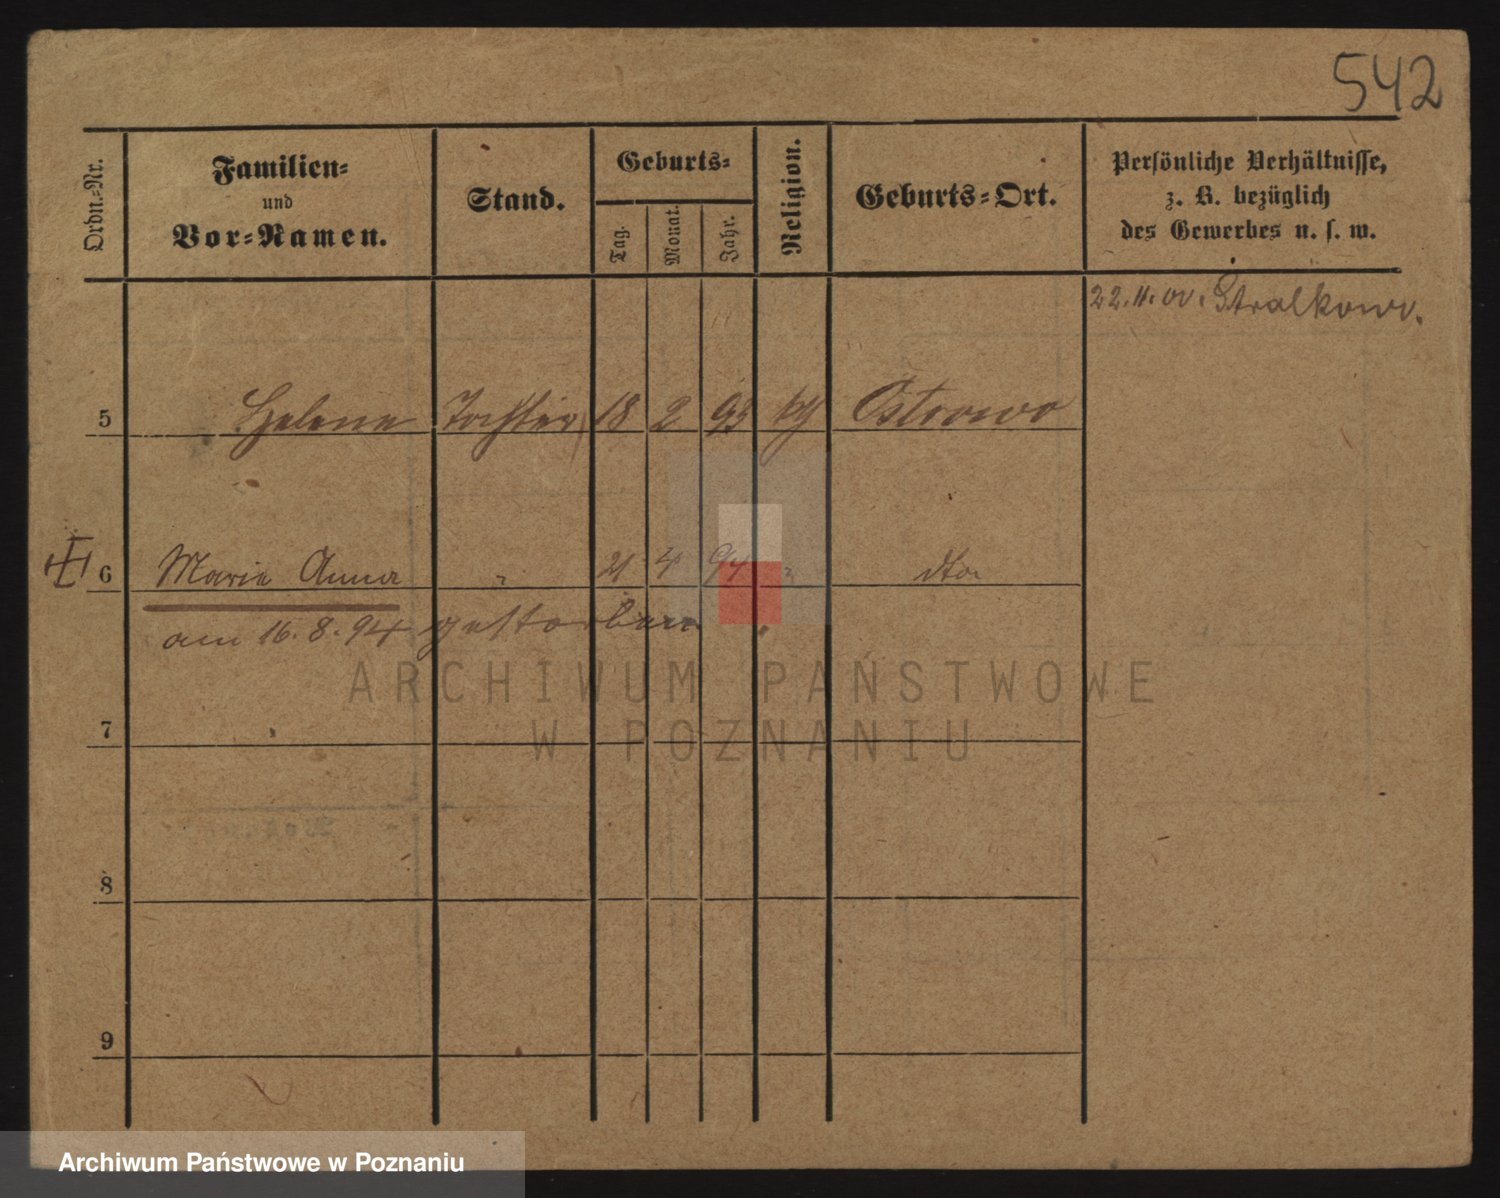 542
Ordn.-Nr.
Familien-
und
Vor-Namen.
Stand.
Geburts-
Tag.
Monat.
Jahr.
Religion.
Geburts-Ort.
Persönliche Verhältnisse,
z. B. bezüglich
des Gewerbes u. s. w.
22.11.00. Stralkowo.
5 Helene Tochter 18 2 93 kth Ostrowo
6 Marie Anna " 21 4 94 " dto
am 16.8.94 gestorben.
ARCHIWUM PAŃSTWOWE
W POZNANIU
7
8
9
Archiwum Państwowe w Poznaniu